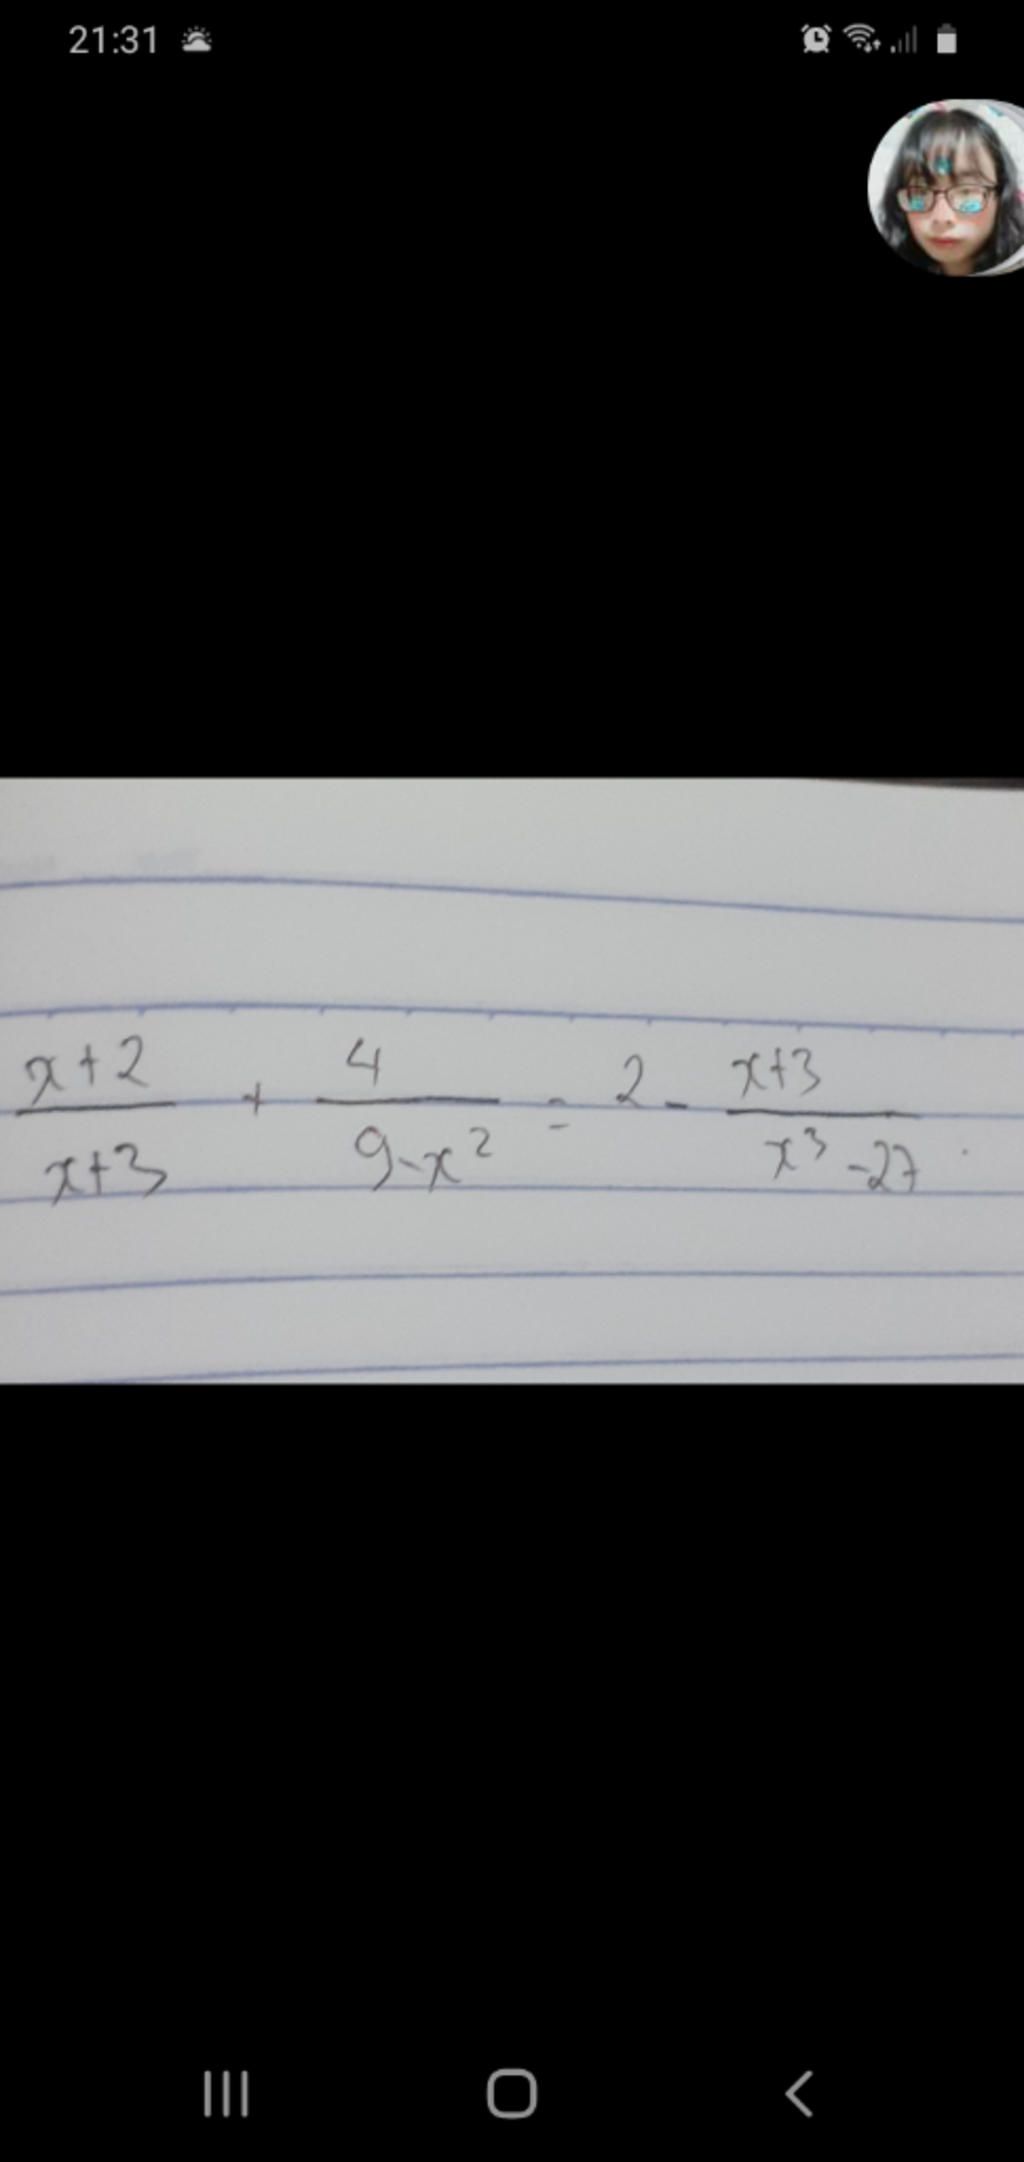 21:31
x+2/x+3 + 4/9-x² = 2 - x+3/x³-27